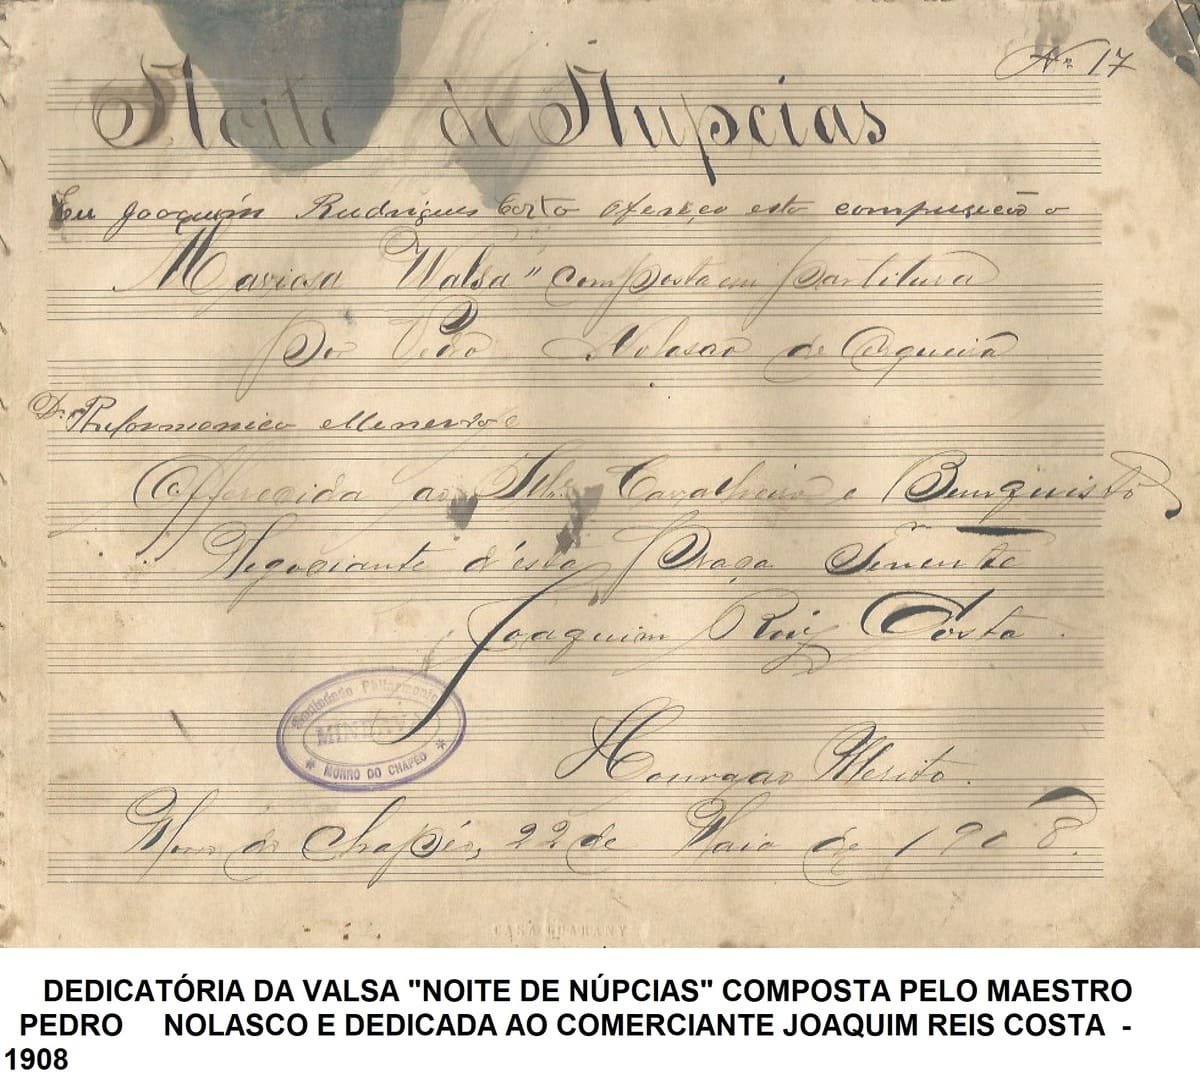 Nº 17
Noite de Nupcias
Eu Joaquim Rudrigues Corto ofereço esta compusicão o
Maviosa "Walsa" composta em partitura
Por Pedro Nolasco de Cerqueira
Da Phylormonica Menerva
Offerecida ao Illmº Cavalheiro e Bemquisto
Negociante d'esta Praça Tenente
Joaquim Reis Costa.
Sociedade Philarmonica
MINERVA
* MORRO DO CHAPEO *
Honra ao Merito.
Morro do Chapéo, 22 de Maio de 1908.
CASA GUARANY
DEDICATÓRIA DA VALSA "NOITE DE NÚPCIAS" COMPOSTA PELO MAESTRO
PEDRO NOLASCO E DEDICADA AO COMERCIANTE JOAQUIM REIS COSTA -
1908